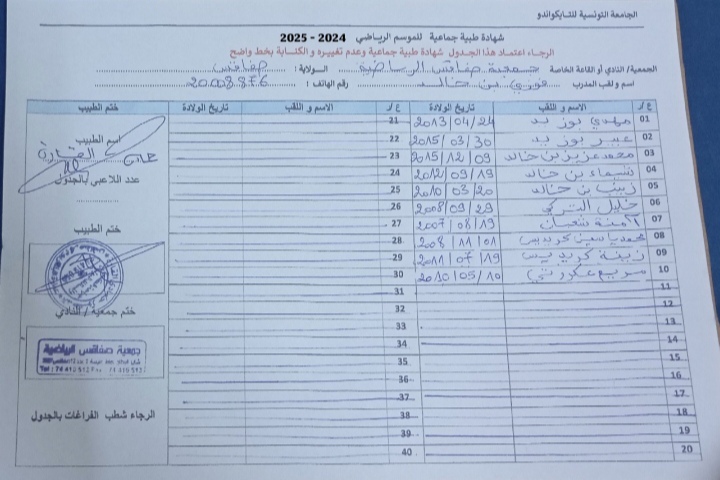 الجامعة التونسية للتايكواندو
شهادة طبية جماعية للموسم الرياضي 2024 - 2025
الرجاء اعتماد هذا الجدول شهادة طبية جماعية وعدم تغييره و الكتابة بخط واضح
الجمعية/ النادي أو القاعة الخاصة : جمعية صفاقس الرياضية الولاية : صفاقس
اسم ولقب المدرب : فوزي بن خالد رقم الهاتف : 20008876
ع/ر الاسم و اللقب تاريخ الولادة ع/ر الاسم و اللقب تاريخ الولادة ختم الطبيب
01 مهدي بوزيد 2013/04/24 21
02 عبير بوزيد 2015/03/30 22
03 محمد عزيز بن خالد 2015/12/09 23
04 شيماء بن خالد 2012/09/19 24
05 زينب بن خالد 2010/03/20 25
06 خليل التركي 2008/09/29 26
07 آمنة شعبان 2007/08/19 27
08 محمد ياسين 2008/11/01 28
09 زينة 2011/07/19 29
10 مريم 2010/05/10 30
11 31
12 32
13 33
14 34
15 35
16 36
17 37
18 38
19 39
20 40
اسم الطبيب
عدد اللاعبي بالجدول
ختم الطبيب
ختم جمعية / النادي
جمعية صفاقس الرياضية
الرجاء شطب الفراغات بالجدول